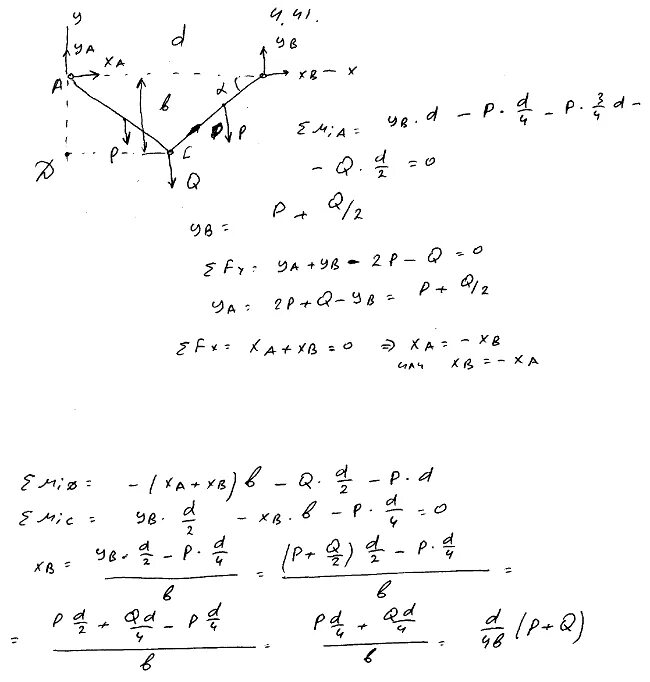 4.41.
y
yA
xA
d
yB
A
α
xB
x
b
P
P
C
D
Q
Σmi A = yB · d − P · d/4 − P · 3/4 d −
− Q · d/2 = 0
yB = P + Q/2
ΣFy = yA + yB − 2P − Q = 0
yA = 2P + Q − yB = P + Q/2
ΣFx = xA + xB = 0 ⇒ xA = − xB
или xB = − xA
Σmi D = − (xA + xB) b − Q · d/2 − P · d
Σmi C = yB · d/2 − xB · b − P · d/4 = 0
xB = (yB · d/2 − P · d/4)/b = ((P + Q/2) d/2 − P · d/4)/b =
= (P d/2 + Qd/4 − P d/4)/b = (P d/4 + Qd/4)/b = d/4b (P + Q)